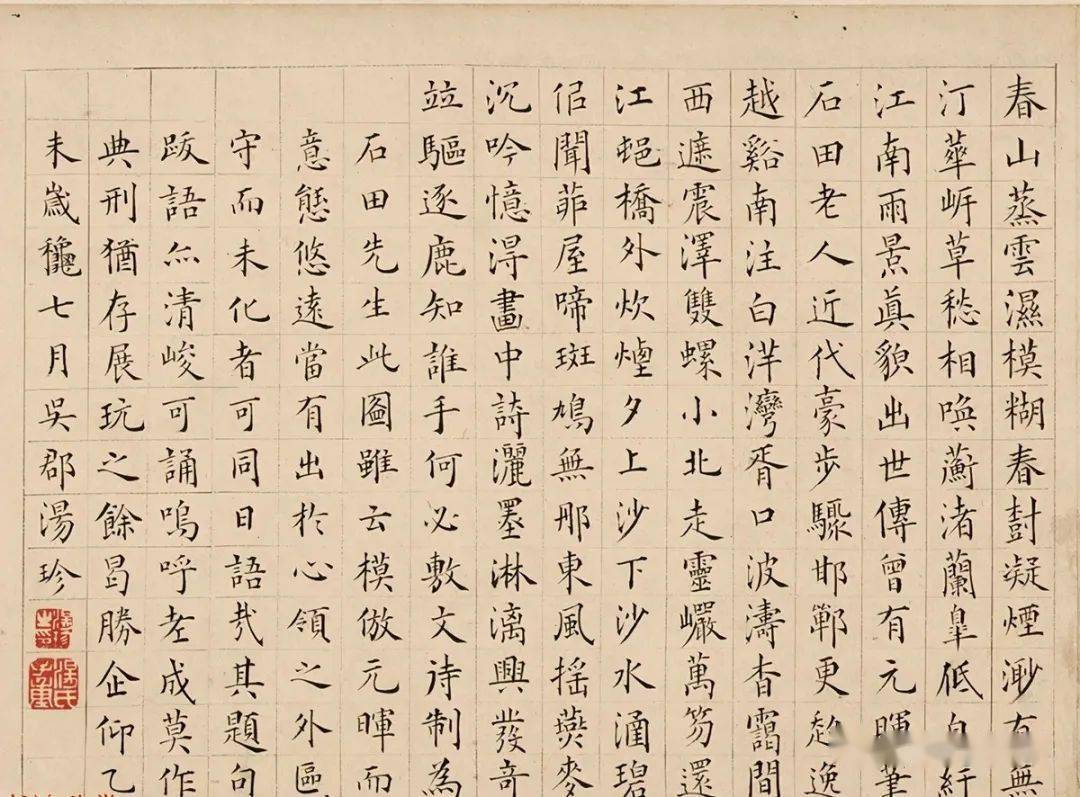 春山蒸雲濕模糊春樹凝煙渺有無
汀蘋岸草愁相喚蘅渚蘭皐低自紆
江南雨景真貌出世傳曾有元暉筆
石田老人近代豪步驟邯鄲更超逸
越谿南注白洋灣胥口波濤杳靄間
西遮震澤雙螺小北走靈巖萬笏還
江蜺橋外炊煙夕上沙下沙水涵碧
佀聞茆屋啼斑鳩無那東風搖燕麥
沉吟憶得畫中詩灑墨淋漓興發奇
竝驅逐鹿知誰手何必敷文待制為
石田先生此圖雖云模倣元暉而
意態悠遠當有出於心領之外區
守而未化者可同日語哉其題句
跋語亦清峻可誦嗚呼老成莫作
典刑猶存展玩之餘曷勝企仰乙
未歲龝七月吳郡湯珍